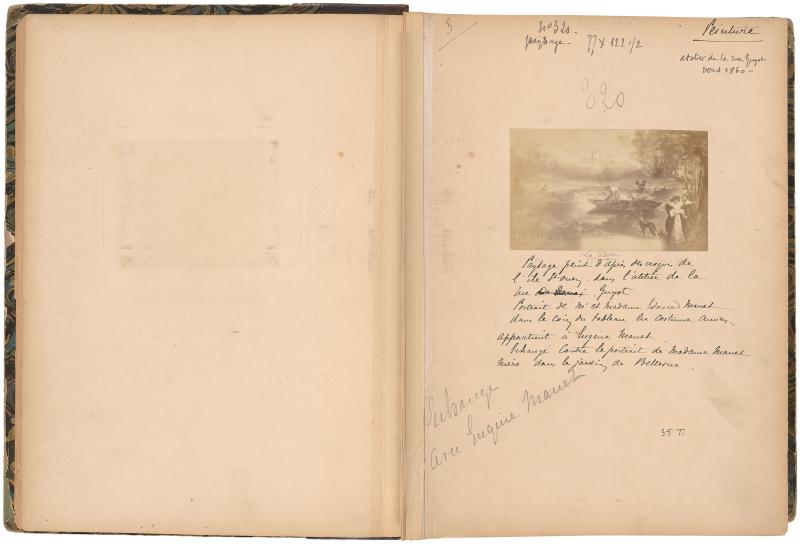 3
No 320.
paysage - 77 x 122 1/2
Peinture
atelier de la rue Guyot
vers 1860 -
320
La Pêche
Paysage peint d'après des croquis de
l'île St Ouen, dans l'atelier de la
rue Guyot
Portrait de Mr et Madame Edouard Manet
dans le coin du tableau en costume ancien.
appartient à Eugène Manet
Echangé contre le portrait de Madame Manet
mère dans le jardin de Bellevue
Echange
avec Eugène Manet
35 T.